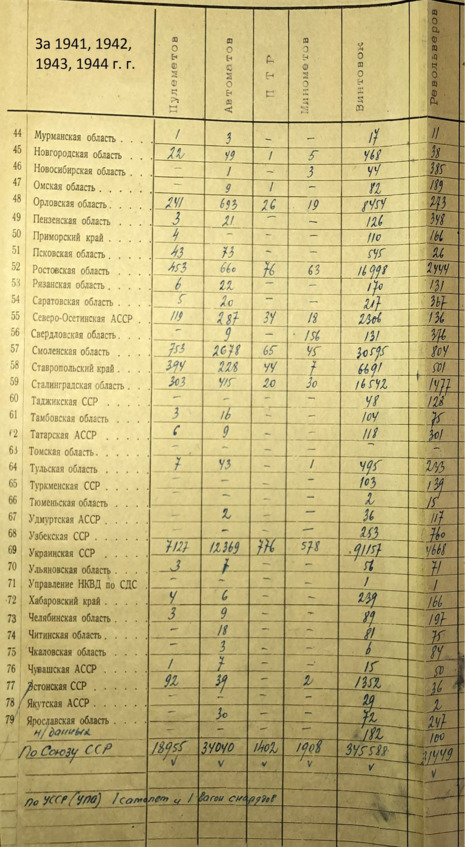 За 1941, 1942,
1943, 1944 г. г.
Пулеметов Автоматов ПТР Минометов Винтовок Револьверов
44 Мурманская область . . . 1 3 – – 17 11
45 Новгородская область . . . 22 49 1 5 468 38
46 Новосибирская область . . – 1 – 3 44 385
47 Омская область . . . . – 9 1 – 82 189
48 Орловская область . . . . 241 693 26 19 8454 273
49 Пензенская область . . . . 3 21 – – 126 348
50 Приморский край . . . . 4 – – – 110 166
51 Псковская область . . . . 43 73 – – 545 26
52 Ростовская область . . . . 453 660 76 63 16998 2444
53 Рязанская область . . . . 6 22 – – 170 131
54 Саратовская область . . . 5 20 – – 217 367
55 Северо-Осетинская АССР . . 119 287 34 18 2306 136
56 Свердловская область . . . – 9 – 156 131 376
57 Смоленская область . . . . 753 2678 65 45 30595 804
58 Ставропольский край . . . 394 228 44 7 6691 501
59 Сталинградская область . . 303 415 20 30 16542 1477
60 Таджикская ССР . . . . – – – – 48 128
61 Тамбовская область . . . . 3 16 – – 104 75
62 Татарская АССР . . . . 6 9 – – 118 301
63 Томская область . . . . – – – – – –
64 Тульская область . . . . 7 43 – 1 495 233
65 Туркменская ССР . . . . – – – – 103 139
66 Тюменьская область . . . – – – – 2 15
67 Удмуртская АССР . . . . – 2 – – 36 117
68 Узбекская ССР . . . . – – – – 253 760
69 Украинская ССР . . . . 7127 12369 776 578 91157 4668
70 Ульяновская область . . . 3 7 – – 56 71
71 Управление НКВД по СДС – – – – 1 1
72 Хабаровский край . . . . 4 6 – – 239 166
73 Челябинская область . . . 3 9 – – 89 197
74 Читинская область . . . . – 18 – – 81 75
75 Чкаловская область . . . – 3 – – 6 84
76 Чувашская АССР . . . . 1 7 – – 15 50
77 Эстонская ССР . . . . 92 39 – 2 1352 36
78 Якутская АССР . . . . – – – – 29 2
79 Ярославская область . . . – 30 – – 72 247
н/данных – – – 182 100
По Союзу ССР 18955 34040 1402 1908 345588 31449
v v v v v v
По УССР (УПА) 1 самолет и 1 вагон снарядов